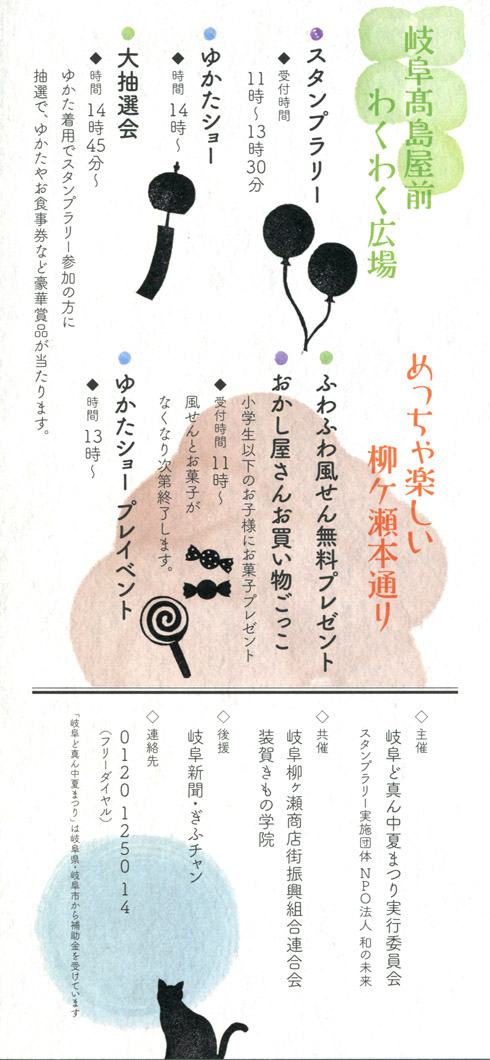 岐阜髙島屋前
わくわく広場
スタンプラリー
◆受付時間
11時〜13時30分
ゆかたショー
◆時間 14時〜
大抽選会
◆時間 14時45分〜
ゆかた着用でスタンプラリー参加の方に
抽選で、ゆかたやお食事券など豪華賞品が当たります。
めっちゃ楽しい
柳ケ瀬本通り
ふわふわ風せん無料プレゼント
おかし屋さんお買い物ごっこ
小学生以下のお子様にお菓子プレゼント
◆受付時間 11時〜
風せんとお菓子が
なくなり次第終了します。
ゆかたショー プレイベント
◆時間 13時〜
◇主催
岐阜ど真ん中夏まつり実行委員会
スタンプラリー実施団体 NPO法人 和の未来
◇共催
岐阜柳ヶ瀬商店街振興組合連合会
装賀きもの学院
◇後援
岐阜新聞・ぎふチャン
◇連絡先
0120 1250 14
(フリーダイヤル)
「岐阜ど真ん中夏まつり」は岐阜県・岐阜市から補助金を受けています